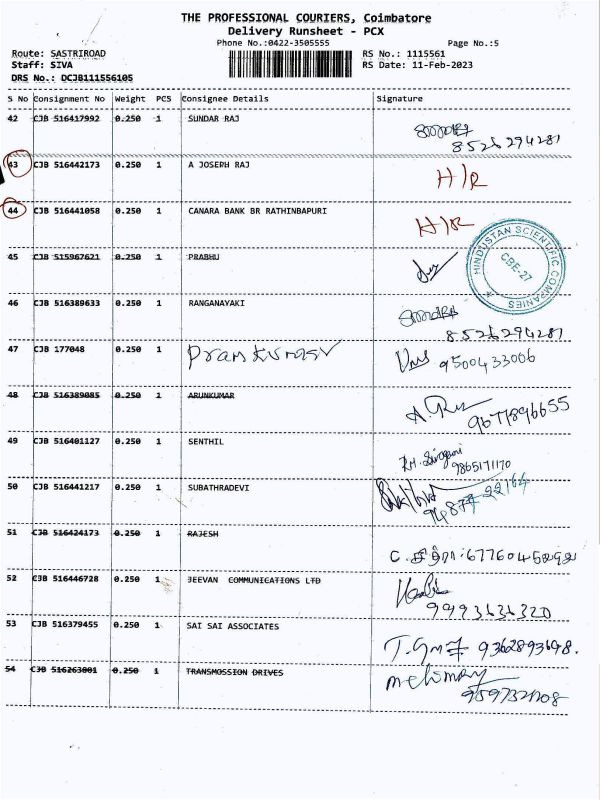 THE PROFESSIONAL COURIERS, Coimbatore
Delivery Runsheet - PCX
Phone No.:0422-3505555
Page No.:5
Route: SASTRIROAD
Staff: SIVA
DRS No.: DCJB111556105
RS No.: 1115561
RS Date: 11-Feb-2023
S No Consignment No Weight PCS Consignee Details Signature
42 CJB 516417992 0.250 1 SUNDAR RAJ
8526294287
43 CJB 516442173 0.250 1 A JOSEPH RAJ H/R
44 CJB 516441058 0.250 1 CANARA BANK BR RATHINBAPURI H/R
HINDUSTAN SCIENTIFIC COMPANIES
CBE-27
45 CJB 515967621 0.250 1 PRABHU
46 CJB 516389633 0.250 1 RANGANAYAKI
8526294287
47 CJB 177048 0.250 1 Pramkumasr 9500433006
48 CJB 516389085 0.250 1 ARUNKUMAR
9677896655
49 CJB 516401127 0.250 1 SENTHIL
9865171170
50 CJB 516441217 0.250 1 SUBATHRADEVI
94877 22164
51 CJB 516424173 0.250 1 RAJESH
52 CJB 516446728 0.250 1 JEEVAN COMMUNICATIONS LTD
53 CJB 516379455 0.250 1 SAI SAI ASSOCIATES
9362893698.
54 CJB 516263001 0.250 1 TRANSMOSSION DRIVES